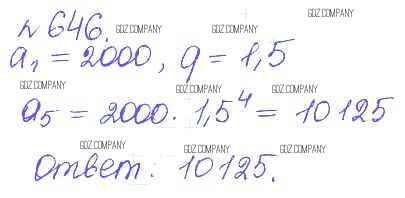 GDZ.COMPANY
№ 646. GDZ.COMPANY GDZ.COMPANY
a₁ = 2000, q = 1,5
GDZ.COMPANY GDZ.COMPANY GDZ.COMPANY
a₅ = 2000 · 1,5⁴ = 10125
GDZ.COMPANY GDZ.COMPANY GDZ.COMPANY
Ответ: 10125.